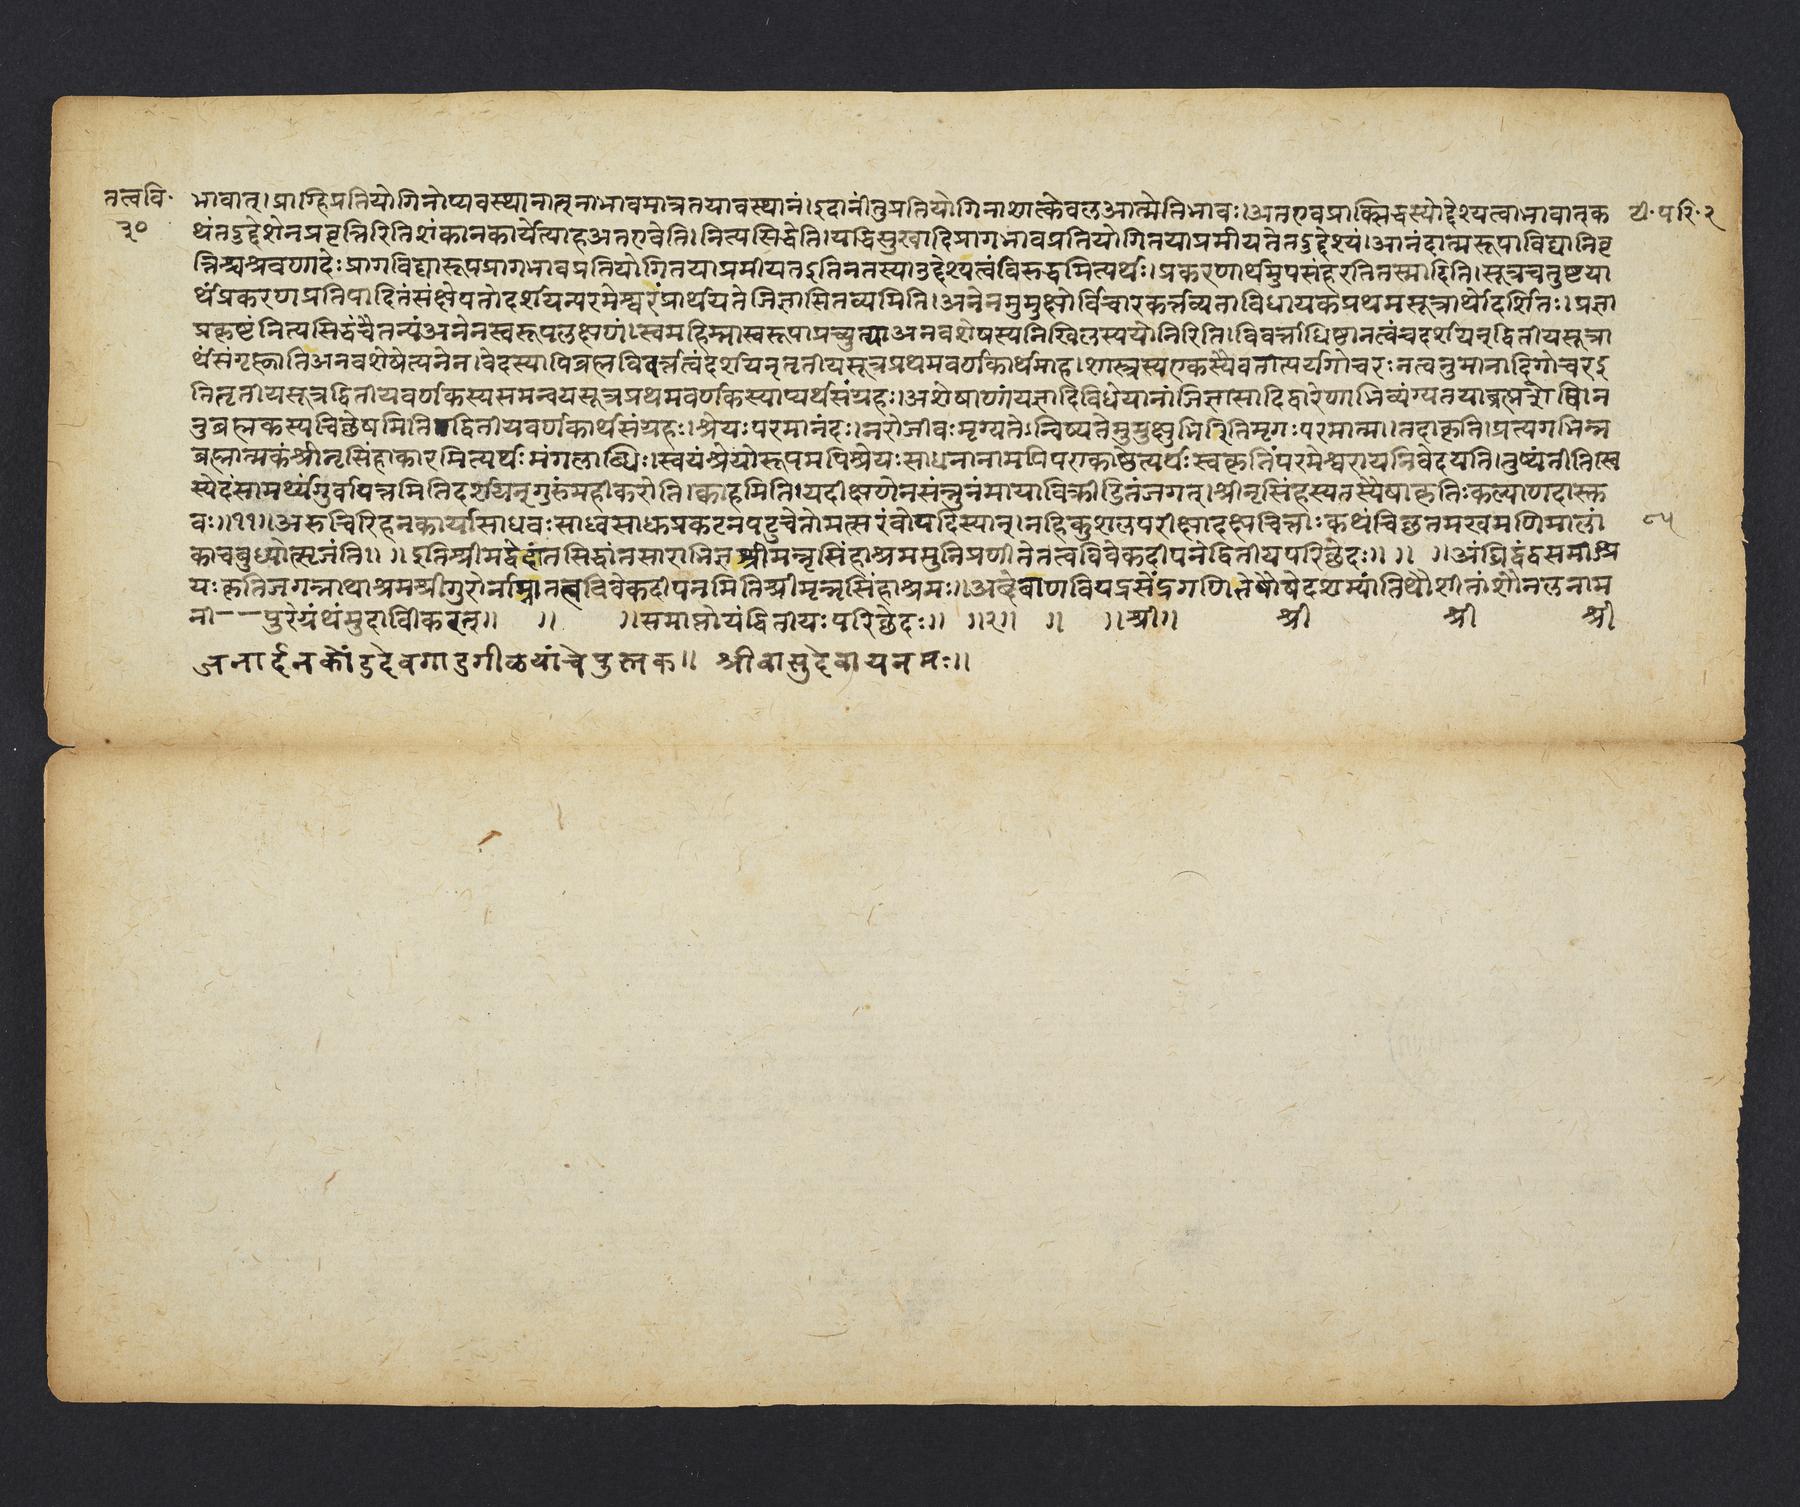 तत्ववि·
३०
टी· परि· २
भावात्।प्राग्हिप्रतियोगिनोप्यवस्थानात्नाभावमात्रतयावस्थानं।इदानींतुप्रतियोगिनाशात्केवलआत्मेतिभावः।अतएवप्राक्सिद्धस्योद्देश्यत्वाभावात्क
थंतदुद्देशेनप्रवृत्तिरितिशंकानकार्येत्याहअतएवेति।नित्यसिद्धेति।यद्धिसुखादिप्रागभावप्रतियोगितयाप्रमीयतेतदुद्देश्यं।आनंदात्मरूपाविद्यानिवृ
त्तिश्चश्रवणादेःप्रागविद्यारूपप्रागभावप्रतियोगितयाप्रमीयतइतिनतस्याउद्देश्यत्वंविरुद्धमित्यर्थः।प्रकरणार्थमुपसंहरतितस्मादिति।सूत्रचतुष्टया
र्थंप्रकरणप्रतिपादितंसंक्षेपतोदर्शयन्परमेश्वरंप्रार्थयतेजिज्ञासितव्यमिति।अनेनमुमुक्षोर्विचारकर्त्तव्यताविधायकप्रथमसूत्रार्थोदर्शितः।प्रज्ञा
प्रकृष्टंनित्यसिद्धंचैतन्यंअनेनस्वरूपलक्षणं।स्वमहिम्नास्वरूपाप्रच्युत्याअनवशेषस्यनिखिलस्ययोनिरिति।विवर्त्ताधिष्ठानत्वंचदर्शयन्द्वितीयसूत्रा
र्थंसंगृह्णातिअनवशेषेत्यनेन।वेदस्यापिब्रह्मविवर्त्तत्वंदर्शयन्तृतीयसूत्रप्रथमवर्णकार्थमाह।शास्त्रस्यएकस्यैवतात्पर्यगोचरःनत्वनुमानादिगोचरइ
तितृतीयसूत्रद्वितीयवर्णकस्यसमन्वयसूत्रप्रथमवर्णकस्याप्यर्थसंग्रहः।अशेषाणांयज्ञादिविधेयानांजिज्ञासादिद्वारेणाभिव्यंग्यतया
तुब्रह्मकस्यचिछेषमितिद्वितीयवर्णकार्थसंग्रहः।श्रेयःपरमानंदः।नरोजीवःमृग्यतेऽन्विष्यतेमुमुक्षुभिरितिमृगःपरमात्मा।तदाकृति।प्रत्यगभिन्न
ब्रह्मात्मकंश्रीनृसिंहाकारमित्यर्थःमंगलाब्धिः।स्वयंश्रेयोरूपमपिश्रेयःसाधनानामपिपराकाष्ठेत्यर्थःस्वकृतिंपरमेश्वरायनिवेदयति।तुष्यंतीति।स्वे
स्येदंसामर्थ्यंगुर्वायत्तमितिदर्शयन्गुरुंमहीकरोति।क्वाहमिति।यदीक्षणेनसंनुन्नंमायाविक्रीडितंजगत्।श्रीनृसिंहस्यतस्यैषाकृतिःकल्याणदास्तु
वः॥११॥अरुचिरिहनकार्यासाधवःसाध्वसाधुप्रकटनपटुचेतोमत्सरंवोयदिस्यात्।नहिकुशलपरीक्षादक्षचित्ताःकथंचिछतमखमणिमालां
काचबुध्योत्सृजंति॥ ॥इतिश्रीमद्वेदांतसिद्धांतसाराभिज्ञश्रीमन्नृसिंहाश्रममुनिप्रणीतेतत्वविवेकदीपनेद्वितीयपरिछेदः॥ ॥ ॥अंघ्रिद्वंद्वसमाश्र
यःकृतिजगन्नाथाश्रमश्रीगुरोर्नाम्नातत्वविवेकदीपनमितिश्रीमन्नृसिंहाश्रमः॥अब्देबाणवियद्रसेंदुगणितेपौषेदशम्यांतिथौशीतांशोनलनाम
नी——पुरेग्रंथंमुदाचीकरत्॥ ॥ ॥समाप्तोयंद्वितीयःपरिछेदः॥ ॥२॥ ॥ ॥श्री॥ श्री श्री श्री
जनार्दनकोंडदेवगाडगीळयांचेपुस्तक॥ श्रीवासुदेवायनमः॥